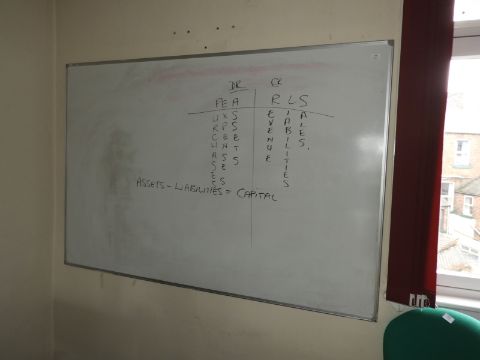 DR CR
PURCHASES
EXPENSES
ASSETS
REVENUE
LIABILITIES
SALES.
ASSETS - LIABILITIES = CAPITAL